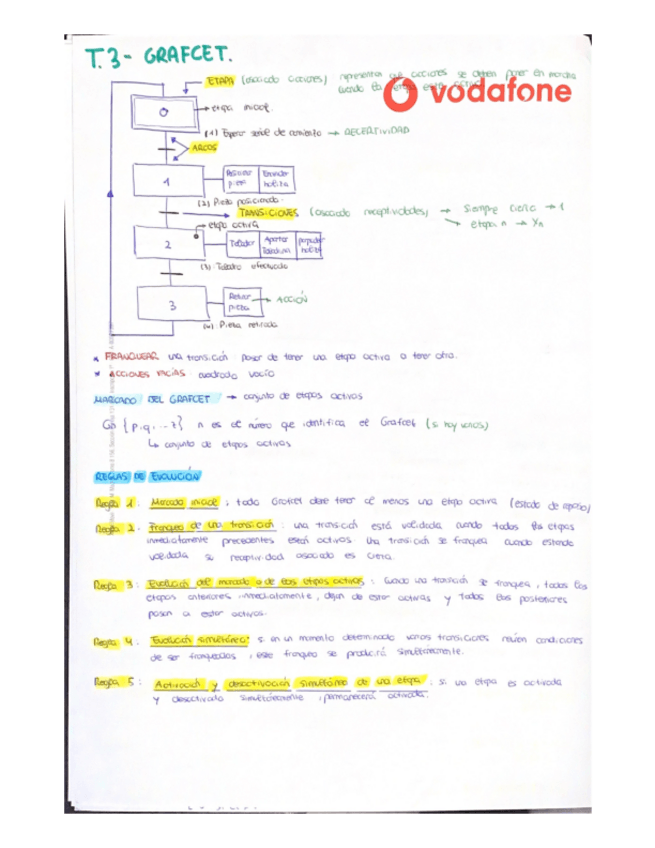 T.3- GRAFCET.
ETAPA (asociado acciones) representan que acciones se deben poner en marcha
cuando la etapa está activa
vodafone
0
etapa inicial.
(1) Esperar señal de comienzo → RECEPTIVIDAD
ARCOS
1
(2) Pieza posicionada.
TRANSICIONES (asociado receptividades) → Siempre cierta → 1
etapa n → Xn
etapa activa
2
Taladrar
(3) Taladro efectuado
3
Retirar
pieza
ACCIÓN
(4) Pieza retirada
* FRANQUEAR una transición: pasar de tener una etapa activa a tener otra.
* ACCIONES VACÍAS cuadrado vacío
MARCADO DEL GRAFCET → conjunto de etapas activas
Gn {p,q,...z} n es el número que identifica el Grafcet (si hay varios)
↳ conjunto de etapas activas
REGLAS DE EVOLUCIÓN
Regla 1: Marcado inicial: todo Grafcet debe tener al menos una etapa activa (estado de reposo)
Regla 2: Franqueo de una transición: una transición está validada cuando todas las etapas
inmediatamente precedentes están activas. Una transición se franquea cuando estando
validada su receptividad asociada es cierta.
Regla 3: Evolución del marcado o de las etapas activas: Cuando una transición se franquea, todas las
etapas anteriores inmediatamente, dejan de estar activas y todas las posteriores
pasan a estar activas.
Regla 4: Evolución simultánea: si en un momento determinado varias transiciones reúnen condiciones
de ser franqueadas, ese franqueo se producirá simultáneamente.
Regla 5: Activación y desactivación simultánea de una etapa: si una etapa es activada
y desactivada simultáneamente, permanecerá activada.